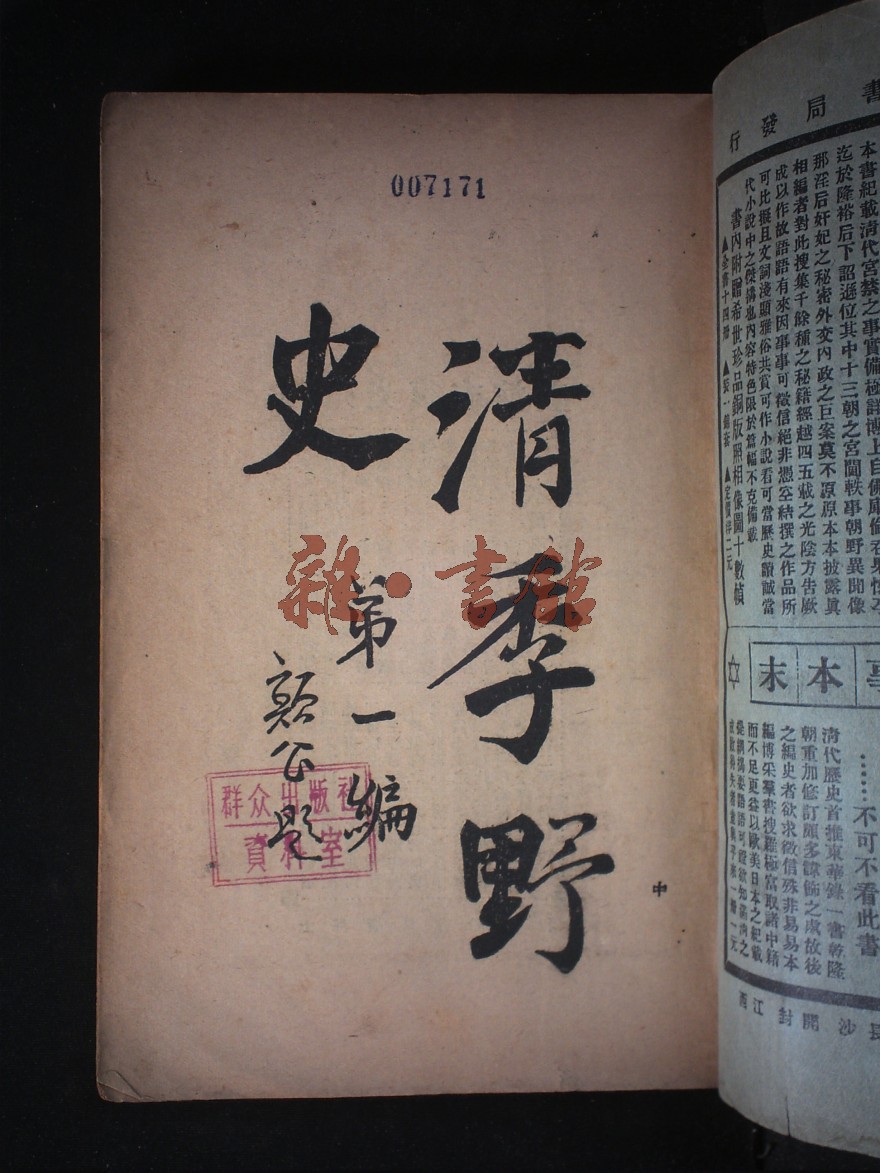 007171
清季野
史
第一編
顥公題
群众出版社
資料室
中
雜·書館
書局發行
本書紀載清代宮禁之事實備極詳博上自佛庫倫吞果
迄於隆裕后下詔遜位其中十三朝之宮闈軼事朝野異聞像
那淫后奸妃之秘密外交內政之巨案莫不原原本本披露眞
相編者對此搜集千餘種之秘籍經越四五載之光陰方告厥
成以作故語語有來因事事可徵信絕非憑空結撰之作品所
可比擬且文詞淺顯雅俗共賞可作小說看可當歷史讀誠當
代小說中之傑搆也內容特色限於篇幅不克備載
書內附贈希世珍品銅版照相像圖十數幀
▲全書十四冊 ▲裝一錦套 ▲定價洋二元
本末
……不可不看此書
清代歷史首推東華錄一書乾隆
朝重加修訂頗多諱飾之處故後
之編史者欲求徵信殊非易易本
編博采羣書搜羅極富取諸中籍
而不足更益以歐美日本之紀載
長沙 開封 江西